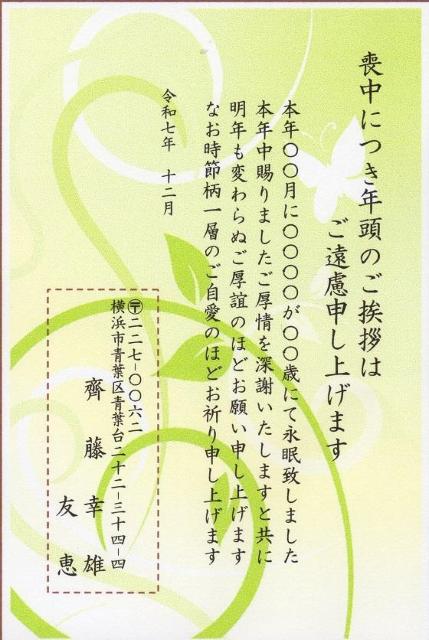 喪中につき年頭のご挨拶は
ご遠慮申し上げます
本年〇〇月に〇〇〇〇が〇〇歳にて永眠致しました
本年中賜りましたご厚情を深謝いたしますと共に
明年も変わらぬご厚誼のほどお願い申し上げます
なお時節柄一層のご自愛のほどお祈り申し上げます
令和七年 十二月
〒二二七-〇〇六二
横浜市青葉区青葉台二十二-三十四-四
齊藤 幸雄
友恵